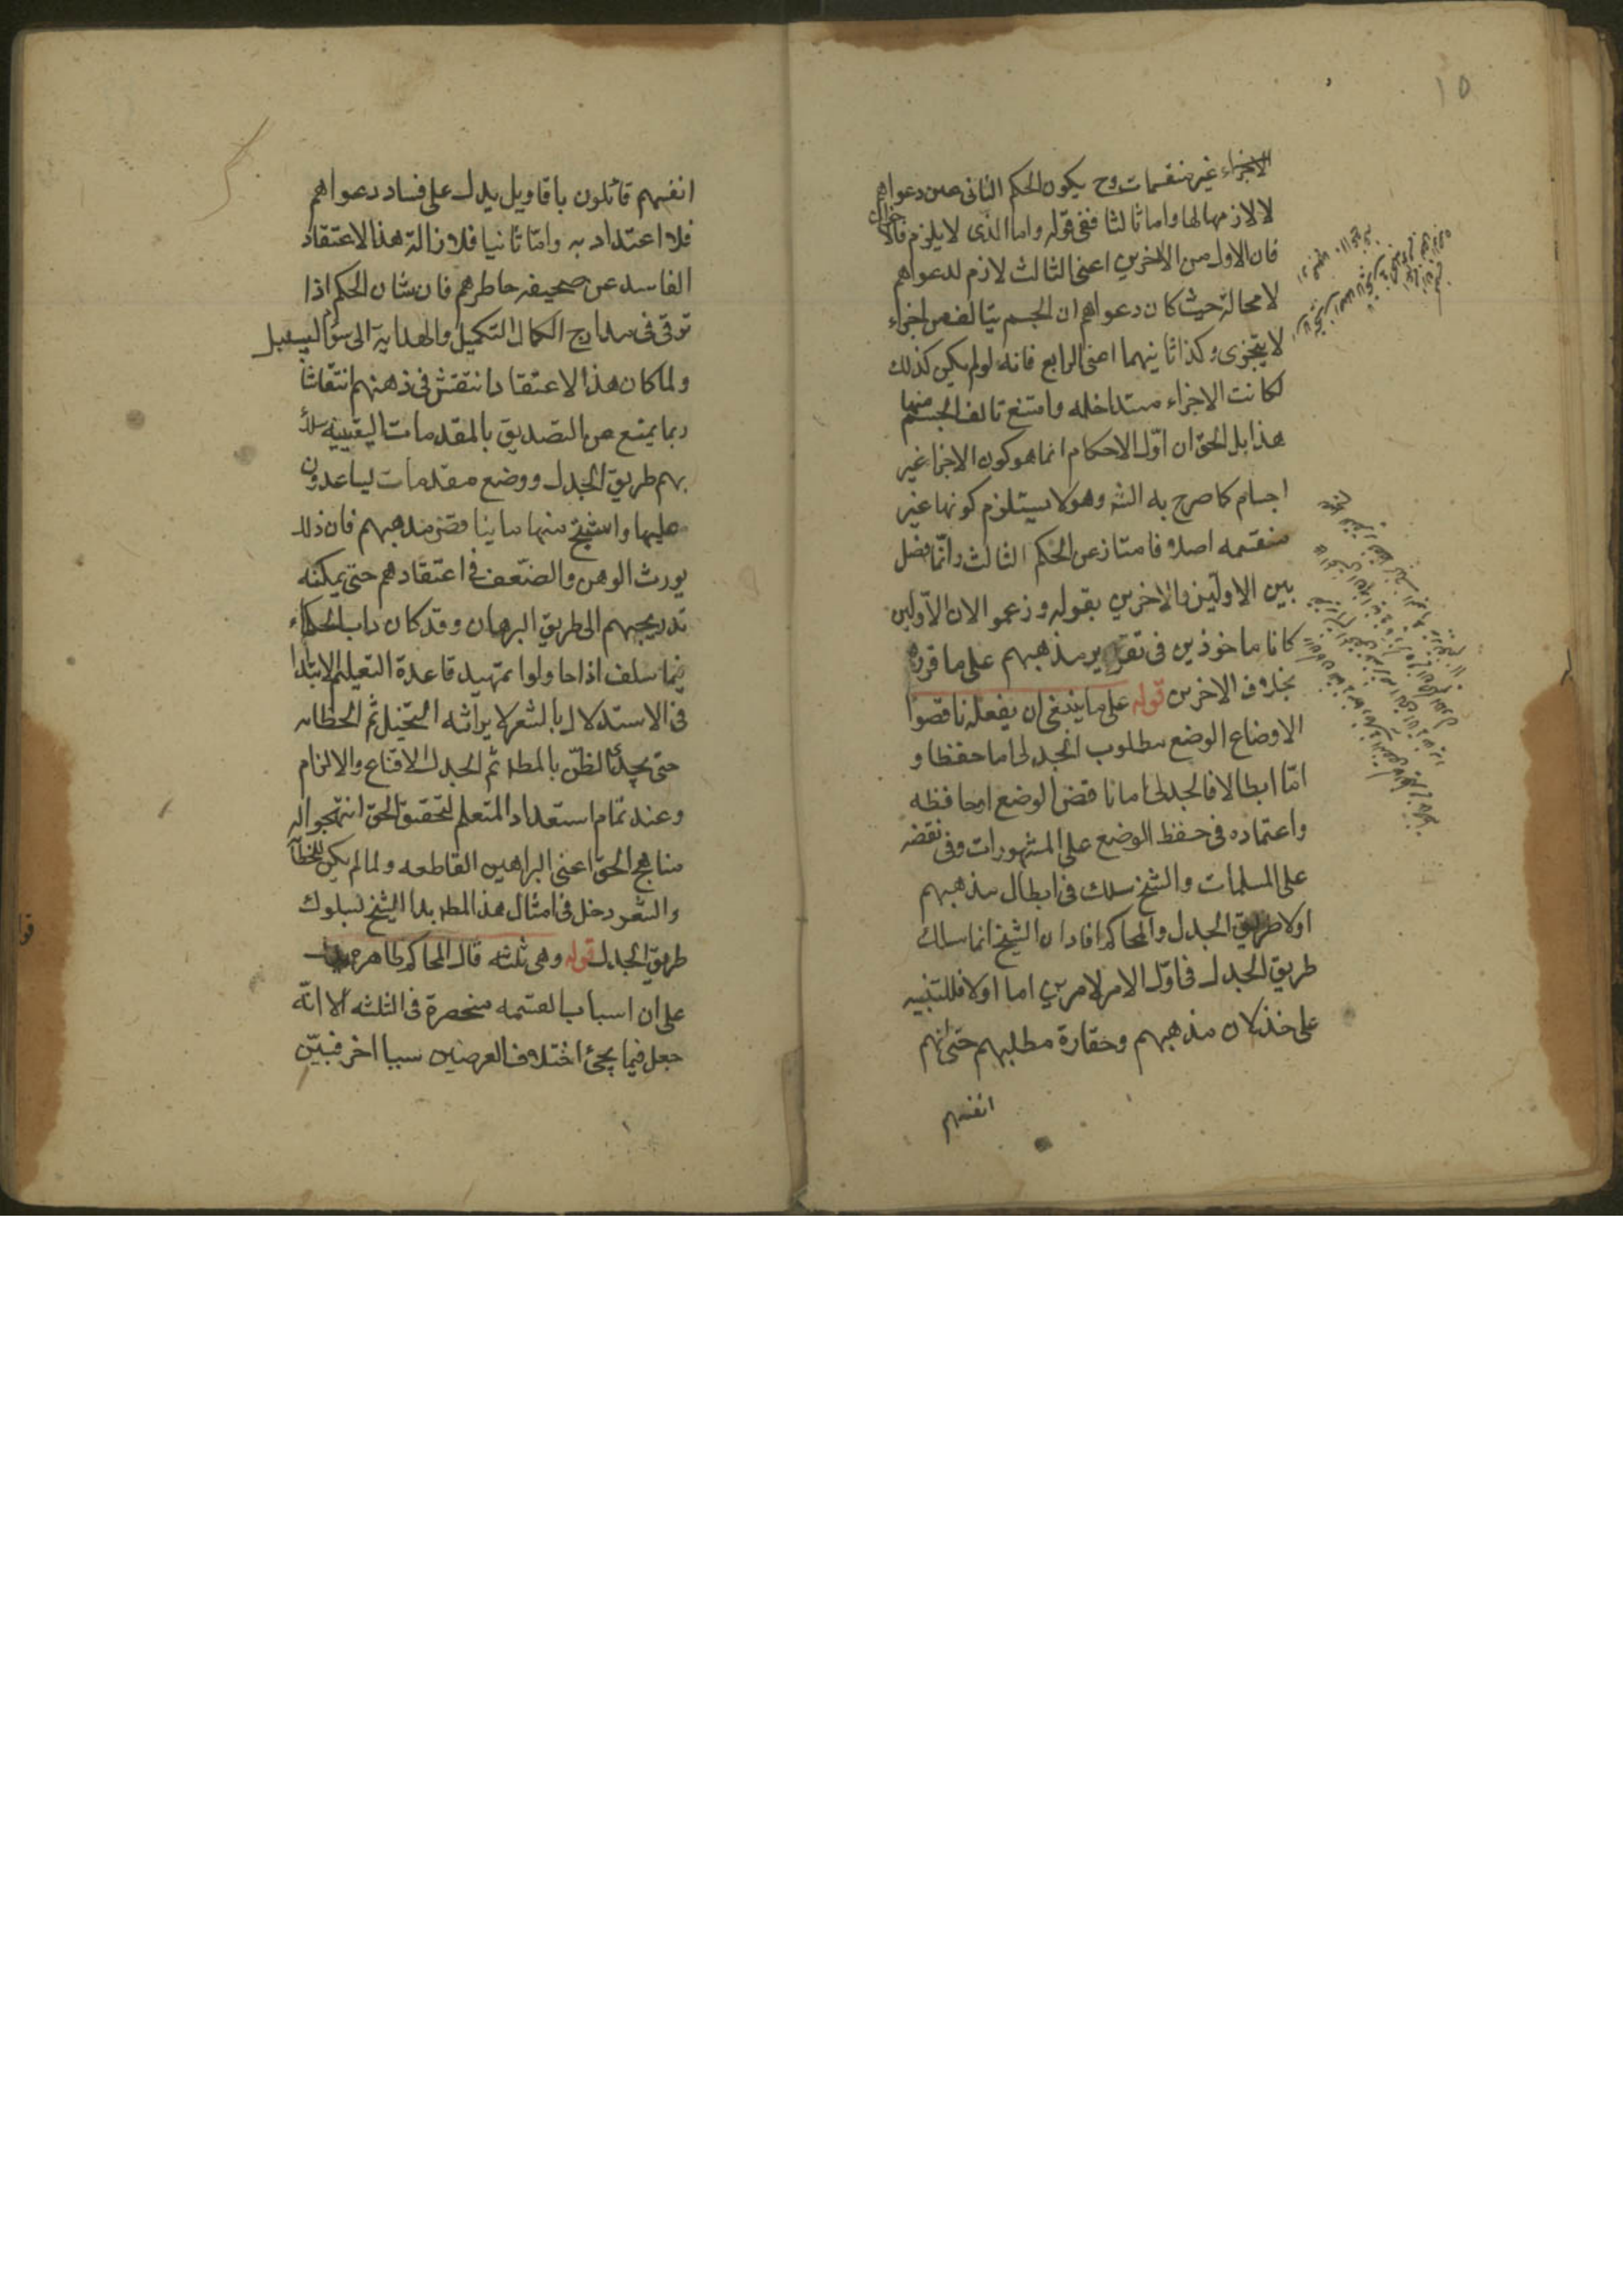 ١٥
الاجزاء غير منقسمات وح يكون الحكم الثانى عين دعواهم
لا لازمها لها واما ثالثا ففى قوله واما الذى لا يلزم
فان الاول من الاخرين اعنى الثالث لازم لدعواهم
لا محالة حيث كان دعواهم ان الجسم يتالف من اجزاء
لا يتجزى وكذا ثانيهما اعنى الرابع فانه لو لم يكن كذلك
لكانت الاجزاء متداخله وامتنع تالف الجسم منها
هذا بل الحق ان اوّل الاحكام انما هو كون الاجزا غير
اجسام كما صرح به الشه وهو لا يستلزم كونها غير
منقسمه اصلا فامتاز عن الحكم الثالث وانّما فصل
بين الاوليّن والاخرين بقوله وزعموا لان الاوّلين
كانا ماخوذين فى تقرير مذهبهم على ما قرره
بخلاف الاخرين قوله على ما ينبغى ان يفعله ناقضوا
الاوضاع الوضع مطلوب الجدلى اما حفظا و
امّا ابطالا فالجدلى اما ناقض الوضع او حافظه
واعتماده فى حفظ الوضع على المشهورات وفى نقضه
على المسلمات والشيخ سلك فى ابطال مذهبهم
اولا طريق الجدل والمحاكم افاد ان الشيخ انما سلك
طريق الجدل فى اوّل الامر لامرين اما اولا فللتنبيه
على خذلان مذهبهم وحقارة مطلبهم حتى انهم
انفسهم
انفسهم قائلون باقاويل يدل على فساد دعواهم
فلا اعتداد به وامّا ثانيا فلازالة هذا الاعتقاد
الفاسد عن صحيفه خاطرهم فان شان الحكيم اذا
ترقى فى مدارج الكمال التكميل والهداية الى سواء السبيل
ولما كان هذا الاعتقاد انتقش فى ذهنهم انتقاشا
ربما يمنع عن التصديق بالمقدمات اليقينيه سلك
بهم طريق الجدل ووضع مقدمات يساعدون
عليها واستنتج منها ما يناقض مذهبهم فان ذلك
يورث الوهن والضعف فى اعتقادهم حتى يمكنه
تدريجهم الى طريق البرهان وقد كان داب الحكماء
فيما سلف اذا حاولوا تمهيد قاعدة التعليم الابتدا
فى الاستدلال بالشعر لايراثه التخيّل ثم الخطابه
حتى يجدى الظنّ بالمطلـ ثم الجدل للاقناع والالزام
وعند تمام استعداد المتعلم لتحقيق الحق انتهجوا له
مناهج الحق اعنى البراهين القاطعه ولما لم يكن للخطابه
والشعر دخل فى امثال هذا المطلـ بدا الشيخ لسلوك
طريق الجدل قوله وهى ثلثه قال المحاكم ظاهره
على ان اسباب القسمه منحصرة فى الثلثه الا انّه
جعل فيما يجئ اختلاف العرضين سببا اخر فبيّن